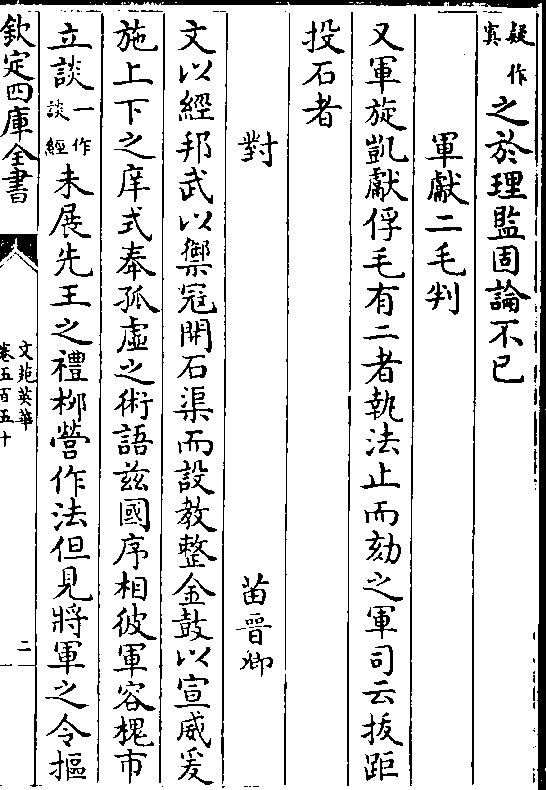 疑作寘之於理監固論不已
軍獻二毛判
又軍旋凱獻俘毛有二者執法止而劾之軍司云拔距
投石者
對 苗晉卿
文以經邦武以禦冦開石渠而設教整金鼓以宣威爰
施上下之庠式奉孤虛之術語兹國序相彼軍容槐市
立談一作談經未展先王之禮栁營作法但見將軍之令摳
欽定四庫全書
文苑英華
卷五百五十
二